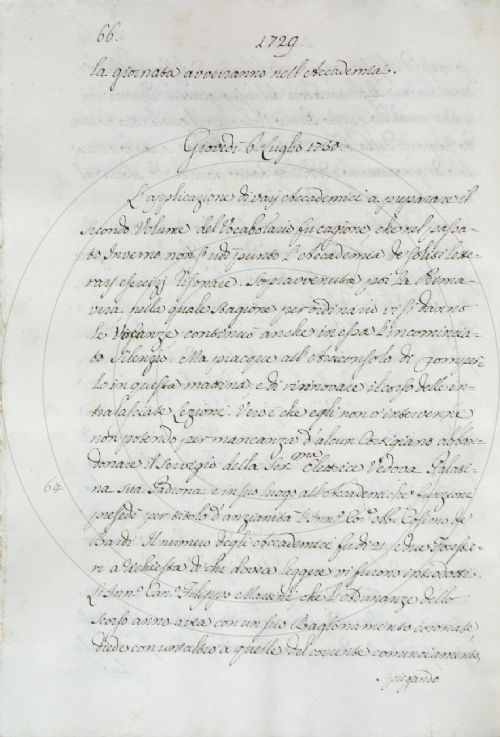 66.
1729
la giornata avveranno nell'Accademia.
Giovedì 6 Luglio 1730.
L'applicazione di varj Accademici a preparare il
secondo Volume del Vocabolario fu cagione, che nel passa-
to Inverno non s'udì punto l'Accademia de soliti lette-
rarj esercizj risonare. Sopravvenuta poi la Prima-
vera, nella quale stagione per ordinario vi si danno
le Vacanze continuò anche in essa l'incomincia-
to silenzio. Ma piacque all'Arciconsolo di romper-
lo in questa mattina e di rinnovare il corso delle in-
tralasciate Lezioni. Vero è che egli non v'intervenne
non potendo per mancanza d'alcun Cortigiano abban-
donare il servigio della Ser.ma Elettrice Vedova Palati-
na sua Padrona; e in suo luogo all'Accademica funzione
presedé per titolo d'anzianità l'Ill.mo Co. Ab. Cosimo de
64
Bardi. Il numero degli Accademici fu di e due Forestie-
ri a richiesta di chi doveva leggere vi furono introdotti.
L'Ill.mo Can.co Filippo che l'Adunanze dello
scorso anno avea con un suo Ragionamento coronate
diede con un altro a quelle del corrente cominciamento,
spiegando